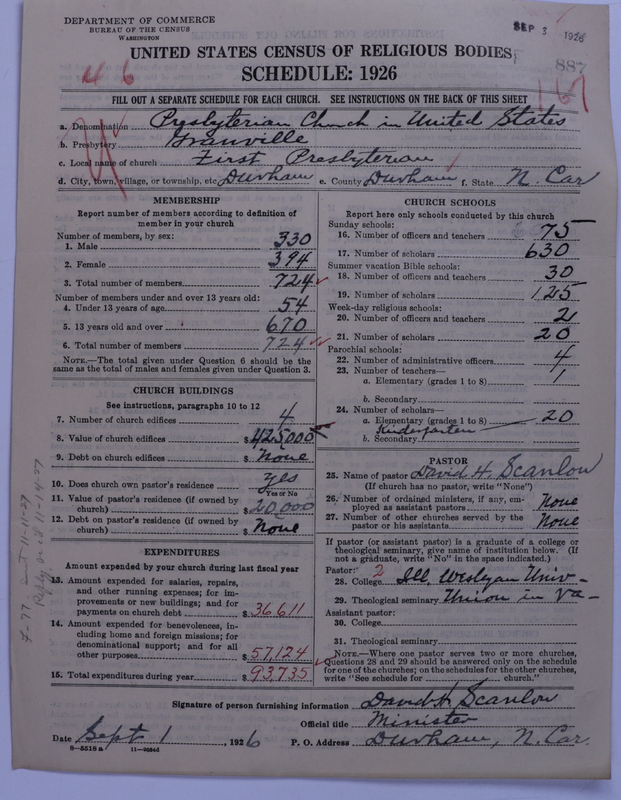 DEPARTMENT OF COMMERCE
BUREAU OF THE CENSUS
WASHINGTON
SEP 3 1926
UNITED STATES CENSUS OF RELIGIOUS BODIES
887
SCHEDULE: 1926
46
167
FILL OUT A SEPARATE SCHEDULE FOR EACH CHURCH. SEE INSTRUCTIONS ON THE BACK OF THIS SHEET
a. Denomination Presbyterian Church in United States
b. Presbytery Granville
c. Local name of church First Presbyterian
d. City, town, village, or township, etc. Durham e. County Durham f. State N. Car
MEMBERSHIP
Report number of members according to definition of
member in your church
Number of members, by sex:
1. Male 330
2. Female 394
3. Total number of members 724
Number of members under and over 13 years old:
4. Under 13 years of age 54
5. 13 years old and over 670
6. Total number of members 724
NOTE.—The total given under Question 6 should be the
same as the total of males and females given under Question 3.
CHURCH BUILDINGS
See instructions, paragraphs 10 to 12
7. Number of church edifices 4
8. Value of church edifices $425,000
9. Debt on church edifices $ None
10. Does church own pastor's residence yes
Yes or No
11. Value of pastor's residence (if owned by
church) $20,000
12. Debt on pastor's residence (if owned by
church) $ None
EXPENDITURES
Amount expended by your church during last fiscal year
13. Amount expended for salaries, repairs,
and other running expenses; for im-
provements or new buildings; and for
payments on church debt $36611
14. Amount expended for benevolences, in-
cluding home and foreign missions; for
denominational support; and for all
other purposes $57,124
15. Total expenditures during year $93,735
CHURCH SCHOOLS
Report here only schools conducted by this church
Sunday schools:
16. Number of officers and teachers 75
17. Number of scholars 630
Summer vacation Bible schools:
18. Number of officers and teachers 30
19. Number of scholars 125
Week-day religious schools:
20. Number of officers and teachers 2
21. Number of scholars 20
Parochial schools:
22. Number of administrative officers 4
23. Number of teachers—
a. Elementary (grades 1 to 8) 1
b. Secondary
24. Number of scholars—
a. Elementary (grades 1 to 8) 20
Kindergarten
b. Secondary
PASTOR
25. Name of pastor David H. Scanlon
(If church had no pastor, write "None")
26. Number of ordained ministers, if any, em-
ployed as assistant pastors None
27. Number of other churches served by the
pastor or his assistants None
If pastor (or assistant pastor) is a graduate of a college or
theological seminary, give name of institution below. (If
not a graduate, write "No" in the space indicated.)
Pastor: 2
28. College Ill. Wesleyan Univ-
29. Theological seminary Union in Va-
Assistant pastor:
30. College
31. Theological seminary
NOTE.—Where one pastor serves two or more churches,
Questions 28 and 29 should be answered only on the schedule
for one of the churches; on the schedules for the other churches,
write "See schedule for church."
Signature of person furnishing information David H. Scanlon
Official title Minister
Date Sept 1, 1926 P. O. Address Durham, N. Car.
8—5518 a